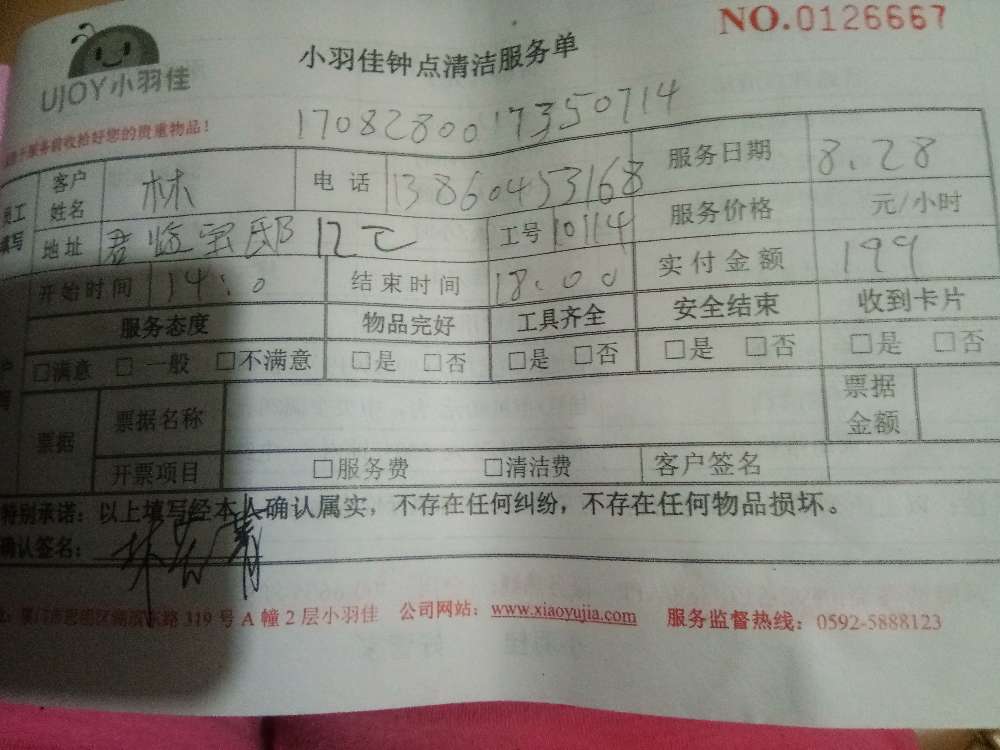 NO.0126667
UJOY小羽佳
小羽佳钟点清洁服务单
服务前收拾好您的贵重物品!
1708280017350714
员工填写 客户姓名 林 电话 13860453168 服务日期 8.28
地址 君临宝邸 12C 工号 10114 服务价格 元/小时
开始时间 14:0 结束时间 18:00 实付金额 199
服务态度 物品完好 工具齐全 安全结束 收到卡片
□满意 □一般 □不满意 □是 □否 □是 □否 □是 □否 □是 □否
票据 票据名称 票据金额
开票项目 □服务费 □清洁费 客户签名
特别承诺:以上填写经本人确认属实,不存在任何纠纷,不存在任何物品损坏。
确认签名:林
厦门市思明区湖滨东路 319 号 A 幢 2 层小羽佳 公司网站:www.xiaoyujia.com 服务监督热线:0592-5888123